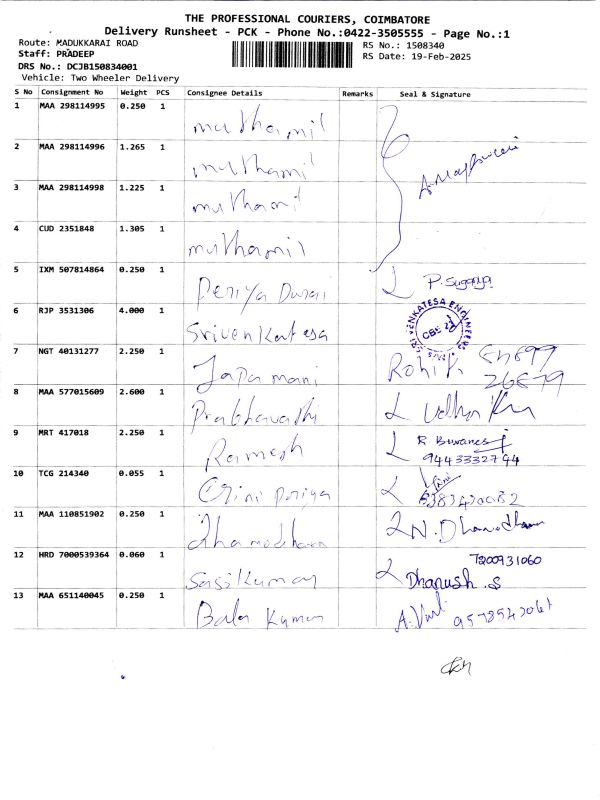 THE PROFESSIONAL COURIERS, COIMBATORE
Delivery Runsheet - PCK - Phone No.:0422-3505555 - Page No.:1
Route: MADUKKARAI ROAD
RS No.: 1508340
Staff: PRADEEP
RS Date: 19-Feb-2025
DRS No.: DCJB150834001
Vehicle: Two Wheeler Delivery
S No Consignment No Weight PCS Consignee Details Remarks Seal & Signature
1 MAA 298114995 0.250 1 muthamil
2 MAA 298114996 1.265 1 muthamil
3 MAA 298114998 1.225 1 muthamil
4 CUD 2351848 1.305 1 muthamil
5 IXM 507814864 0.250 1 Periya Durai P. Suganya
6 RJP 3531306 4.000 1 Srivenkatesa SRI VENKATESA ENGINEERS CBE
7 NGT 40131277 2.250 1 Japa mani Rohith
8 MAA 577015609 2.600 1 Prabhavathi
9 MRT 417018 2.250 1 Ramesh
9443332794
10 TCG 214340 0.055 1
11 MAA 110851902 0.250 1 dhamodharan N. Dhamodharan
12 HRD 7000539364 0.060 1 Sasikumar 7200931060
Dhanush.S
13 MAA 651140045 0.250 1 Bala Kumar